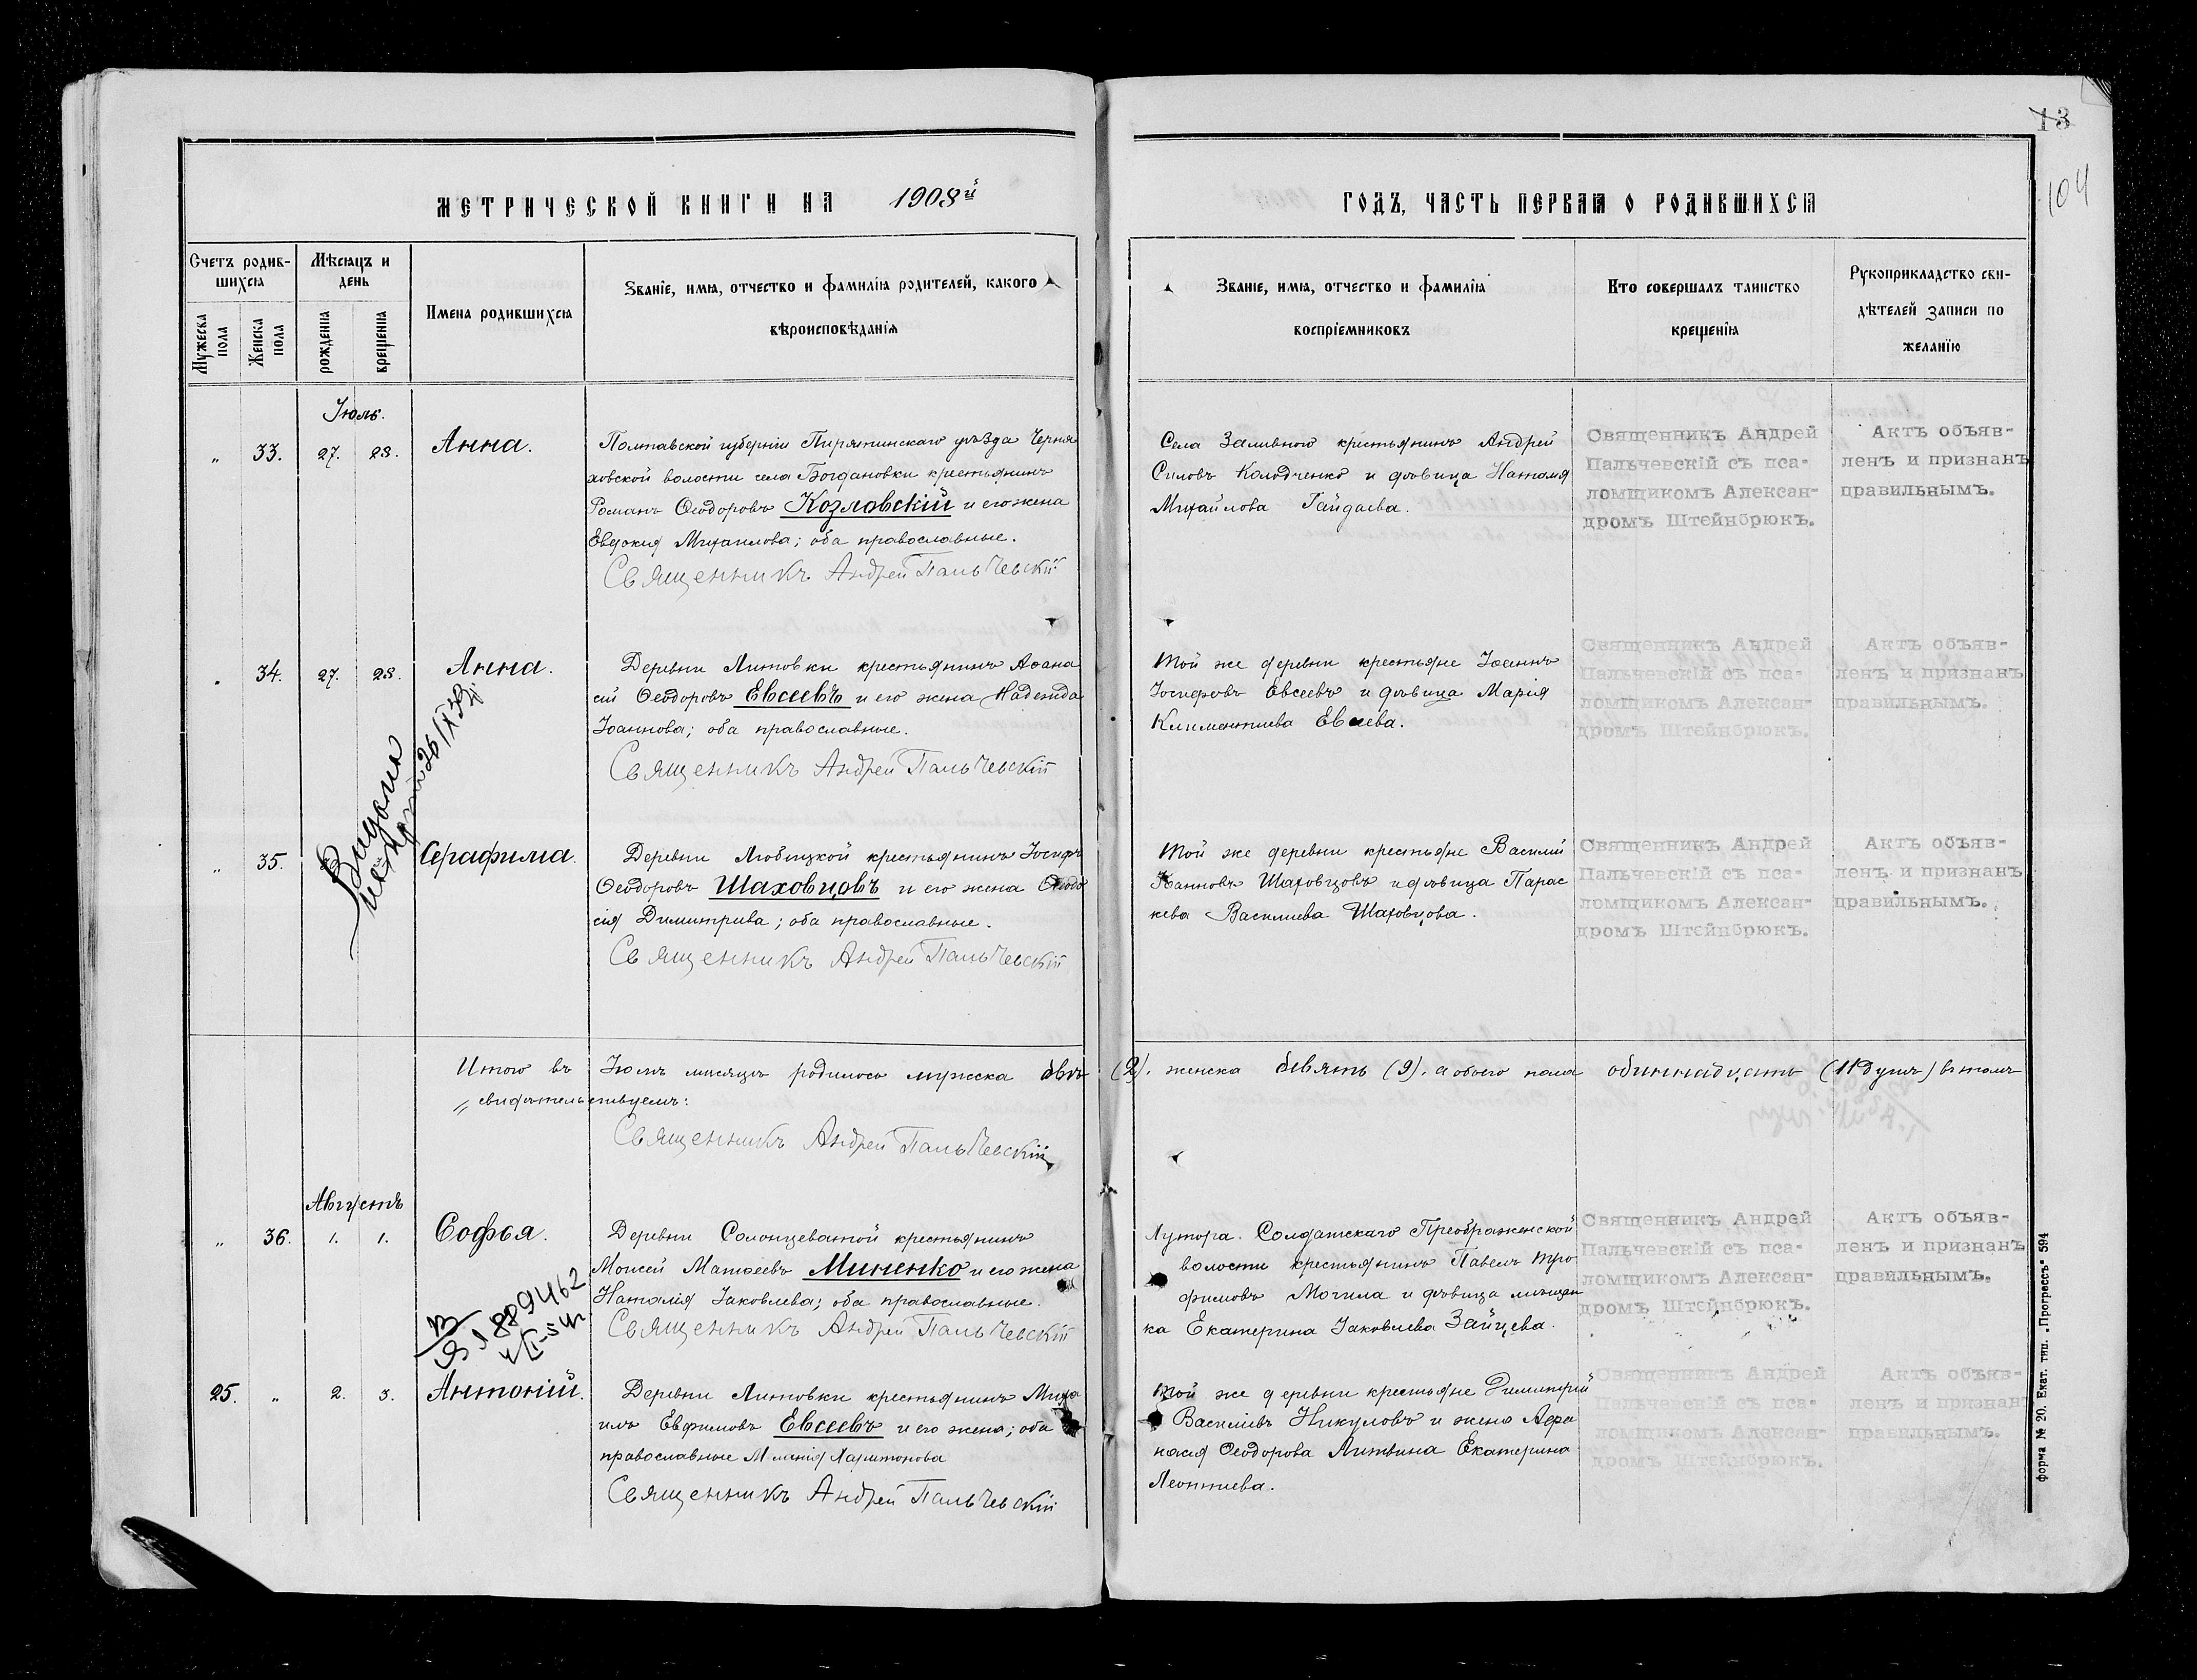 13
104
МЕТРИЧЕСКОЙ КНИГИ НА 1908й
ГОДЪ, ЧАСТЬ ПЕРВАЯ О РОДИВШИХСЯ
Счетъ родив-
шихся
Мужеска пола
Женска пола
Мѣсяцъ и
день
рожденія
крещенія
Имена родившихся
Званіе, имя, отчество и фамилія родителей, какого
вѣроисповѣданія
Званіе, имя, отчество и фамилія
воспріемниковъ
Кто совершалъ таинство
крещенія
Рукоприкладство сви-
дѣтелей записи по
желанію
Іюль.
„ 33. 27. 28. Анна.
Полтавской губерніи Пирятинскаго уѣзда Черня
ховской волости села Богдановки крестьянинъ
Романъ Ѳеодоровъ Козловскій и его жена
Евдокія Михаилова; оба православные.
Священникъ Андрей Пальчевскій
Села Заливного крестьянинъ Андрей
Силовъ Колодченко и дѣвица Наталія
Михайлова Гайдаева.
Священникъ Андрей
Пальчевскій съ пса-
ломщикомъ Алексан-
дромъ Штейнбрюкъ.
Актъ объяв-
ленъ и признанъ
правильнымъ.
„ 34. 27. 28. Анна.
Деревни Литовки крестьянинъ Аѳана
сій Ѳеодоровъ Евсеевъ и его жена Надежда
Іоаннова; оба православные.
Священникъ Андрей Пальчевскій
Той же деревни крестьяне Іоаннъ
Іосифовъ Евсеевъ и дѣвица Марія
Климентіева Евсеева.
Священникъ Андрей
Пальчевскій съ пса-
ломщикомъ Алексан-
дромъ Штейнбрюкъ.
Актъ объяв-
ленъ и признанъ
правильнымъ.
„ 35. Серафима.
Деревни Любицкой крестьянинъ Іосифъ
Ѳеодоровъ Шаховцовъ и его жена Ѳеодо
сія Димитріева; оба православные.
Священникъ Андрей Пальчевскій
Той же деревни крестьяне Василій
Іоанновъ Шаховцовъ и дѣвица Парас
кева Василіева Шаховцова.
Священникъ Андрей
Пальчевскій съ пса-
ломщикомъ Алексан-
дромъ Штейнбрюкъ.
Актъ объяв-
ленъ и признанъ
правильнымъ.
Итого въ Іюлѣ мѣсяцѣ родилось мужска двѣ (2), женска девять (9), а обоего пола одиннадцать (11 душъ) въ томъ
свидѣтельствуемъ:
Священникъ Андрей Пальчевскій
Августъ
„ 36. 1. 1. Софья.
Деревни Солонцеватой крестьянинъ
Моисей Матѳеевъ Миненко и его жена
Наталія Іаковлева; оба православные.
Священникъ Андрей Пальчевскій
Хутора Солдатскаго Преображенской
волости крестьянинъ Павелъ Тро
фимовъ Могила и дѣвица мѣщан
ка Екатерина Іаковлева Зайцева.
Священникъ Андрей
Пальчевскій съ пса-
ломщикомъ Алексан-
дромъ Штейнбрюкъ.
Актъ объяв-
ленъ и признанъ
правильнымъ.
889462
25. „ 2. 3. Антоній.
Деревни Литовки крестьянинъ Миха
илъ Евфимовъ Евсеевъ и его жена; оба
православные Меланія Харитонова
Священникъ Андрей Пальчевскій
Той же деревни крестьяне Димитрій
Василіевъ Никуловъ и жена Афа
насія Ѳеодорова Литвина Екатерина
Леонтіева.
Священникъ Андрей
Пальчевскій съ пса-
ломщикомъ Алексан-
дромъ Штейнбрюкъ.
Актъ объяв-
ленъ и признанъ
правильнымъ.
Форма № 20. Екат. тип. „Прогрессъ" 594